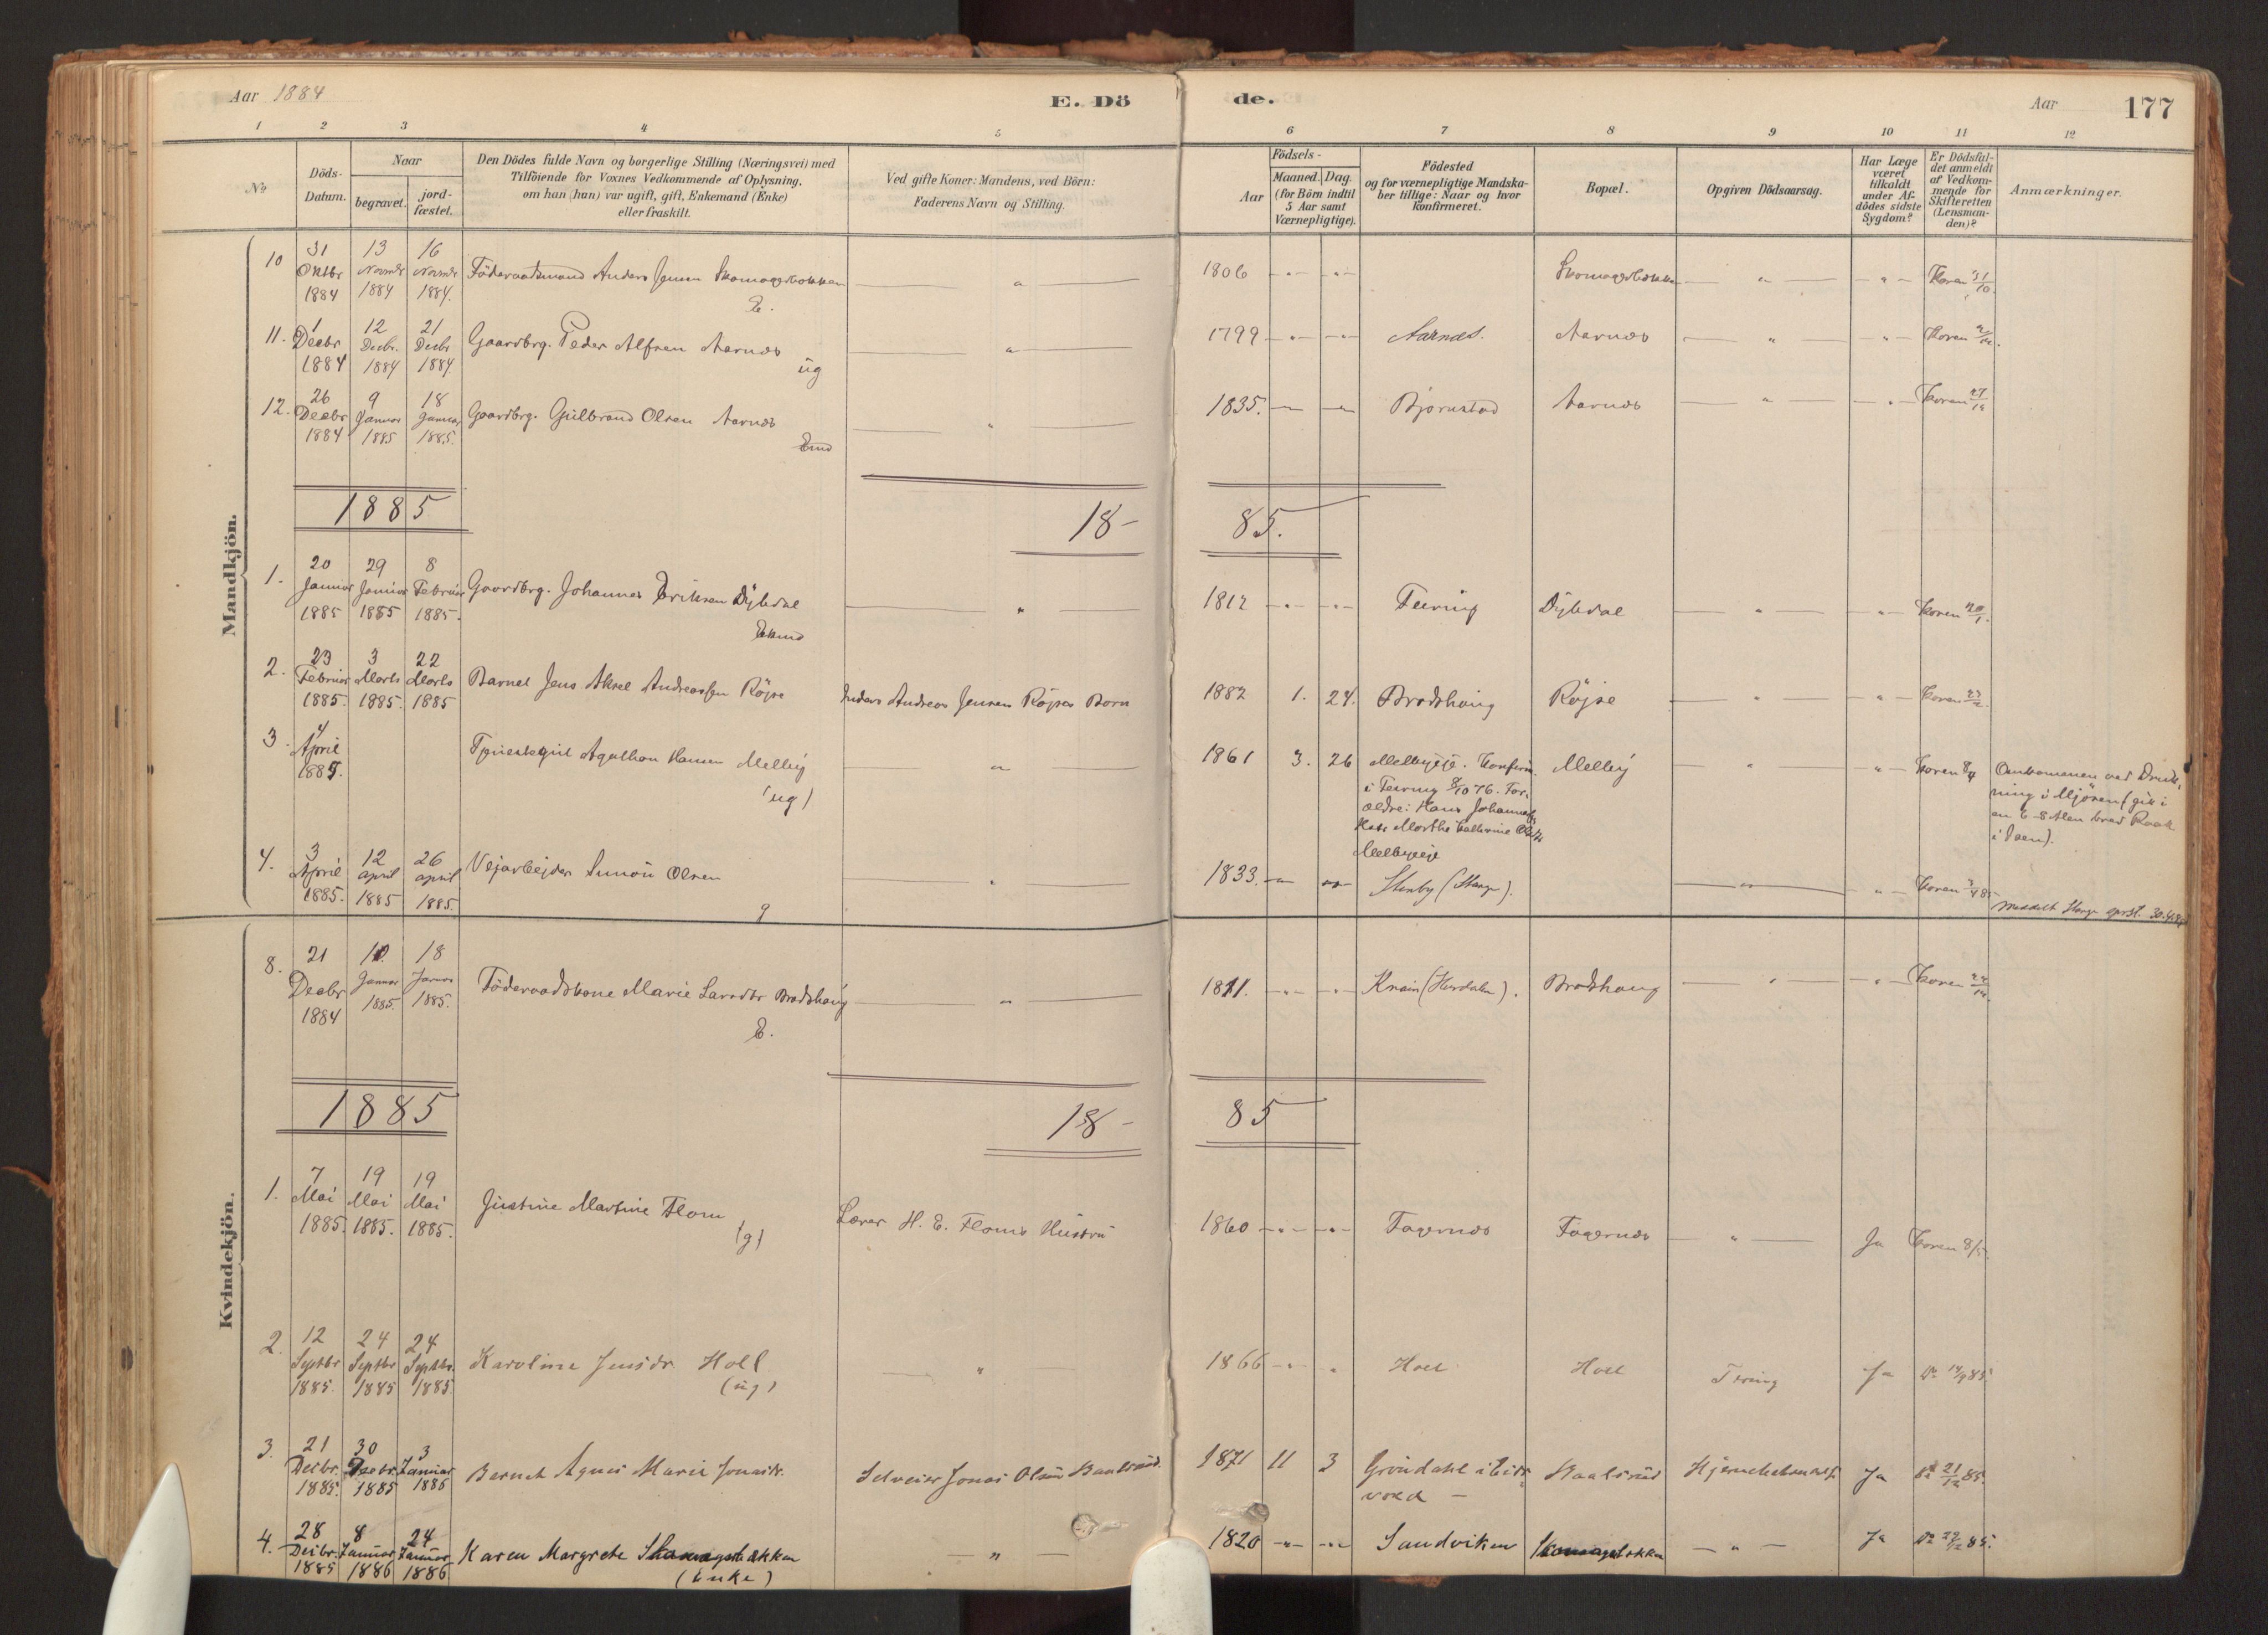 Aar 1884
E. Dö
de.
Aar
177
1 2 3 4 5 6 7 8 9 10 11 12
No
Döds-
Datum.
Naar
begravet.
jord-
fæstet.
Den Dödes fulde Navn og borgerlige Stilling (Næringsvei) med
Tilföiende for Voxnes Vedkommende af Oplysning,
om han (hun) var ugift, gift, Enkemand (Enke)
eller fraskilt.
Ved gifte Koner: Mandens, ved Börn:
Faderens Navn og Stilling.
Födsels-
Aar
Maaned. Dag.
(for Börn indtil
5 Aar samt
Værnepligtige).
Födested
og for værnepligtige Mandska-
ber tillige: Naar og hvor
konfirmeret.
Bopæl.
Opgiven Dödsaarsag.
Har Læge
været
tilkaldt
under Af-
dödes sidste
Sygdom?
Er Dödsfal-
det anmeldt
af Vedkom-
mende for
Skifteretten
(Lensman-
den)?
Anmærkninger.
Mandkjön.
10 31 Oktbr 1884 13 Novmbr 1884 16 Novmbr 1884. Föderaadsmand Anders Jensen Skomagerbakken E. 1806 Skomagerbakken 31/10.
11. 1 Decbr 1884 12 Decbr. 1884 21 Decbr 1884. Gaardbrg. Peder Alfsen Aarnæs ug 1799 Aarnæs. Aarnæs
12. 26 Decbr 1884 9 Januar 1885 18 Januar 1885. Gaardbrg. Gulbrand Olsen Aarnæs Emd 1835. Bjørnstad Aarnæs 27/12
1885
18-
85.
1. 20 Januar 1885 29 Januar 1885 8 Februar 1885. Gaardbrg. Johannes Eriksen Dybdal Ekmd 1812 Feiring Dybdal 20/1.
2. 23 Februar 1885. 3 Marts 1885. 22 Marts 1885 Barnet Jens Aksel Andreassen Röjse Anders Andreas Jensen Röjses Barn 1882 1. 24. Brodshaug Röjse
3. 4 April 1885. Agathon Hansen Melby (ug) 1861 3. 26 Melbyeje. Konfirm.
i Feiring 8/10 76. For-
ældre: Hans Johannes
Marthe Kathrine
Melbyeje
Melby 8/4 Omkommen ved Druk-
ning i Mjösen (gik i
en 6-8 Alen bred Raak
i Isen).
4. 3 April 1885. 12 april 1885 26 april 1885. Vejarbejder Simon Olsen g 1833. (Stange). 3/4 85
Meddelt Stange
Kvindekjön.
8. 21 Decbr 1884 10. Januar 1885. 18 Januar 1885. Föderaadskone Marie Larsdtr Brodshaug E. 1811. (Hurdalen). Brodshaug
1885
18-
85
1. 7 Mai 1885. 19 Mai 1885. 19 Mai 1885. Justine Martine Flom (g) Lærer H. E. Floms Hustru 1860 Fagernæs Fagernæs Ja 8/5.
2. 12 Septbr 1885. 24 Septbr 1885 24 Septbr. 1885. Karoline Jensdr. Holl (ug) 1866 Holl Holl Ja 85.
3. 21 Decbr. 1885. 30 Decbr. 1885 3 Januar 1886 Barnet Agnes Marie Jonasdr. Selveier Jonas Olsen 1871 11 3 Gröndahl i Eids-
vold - Ja 21/12 85.
4. 28 Decbr. 1885 8 Januar 1886 24 Januar 1886 Karen Margrete Skomagerbakken (Enke) 1820 Sandviken Skomagerbakken Ja 29/12 85.